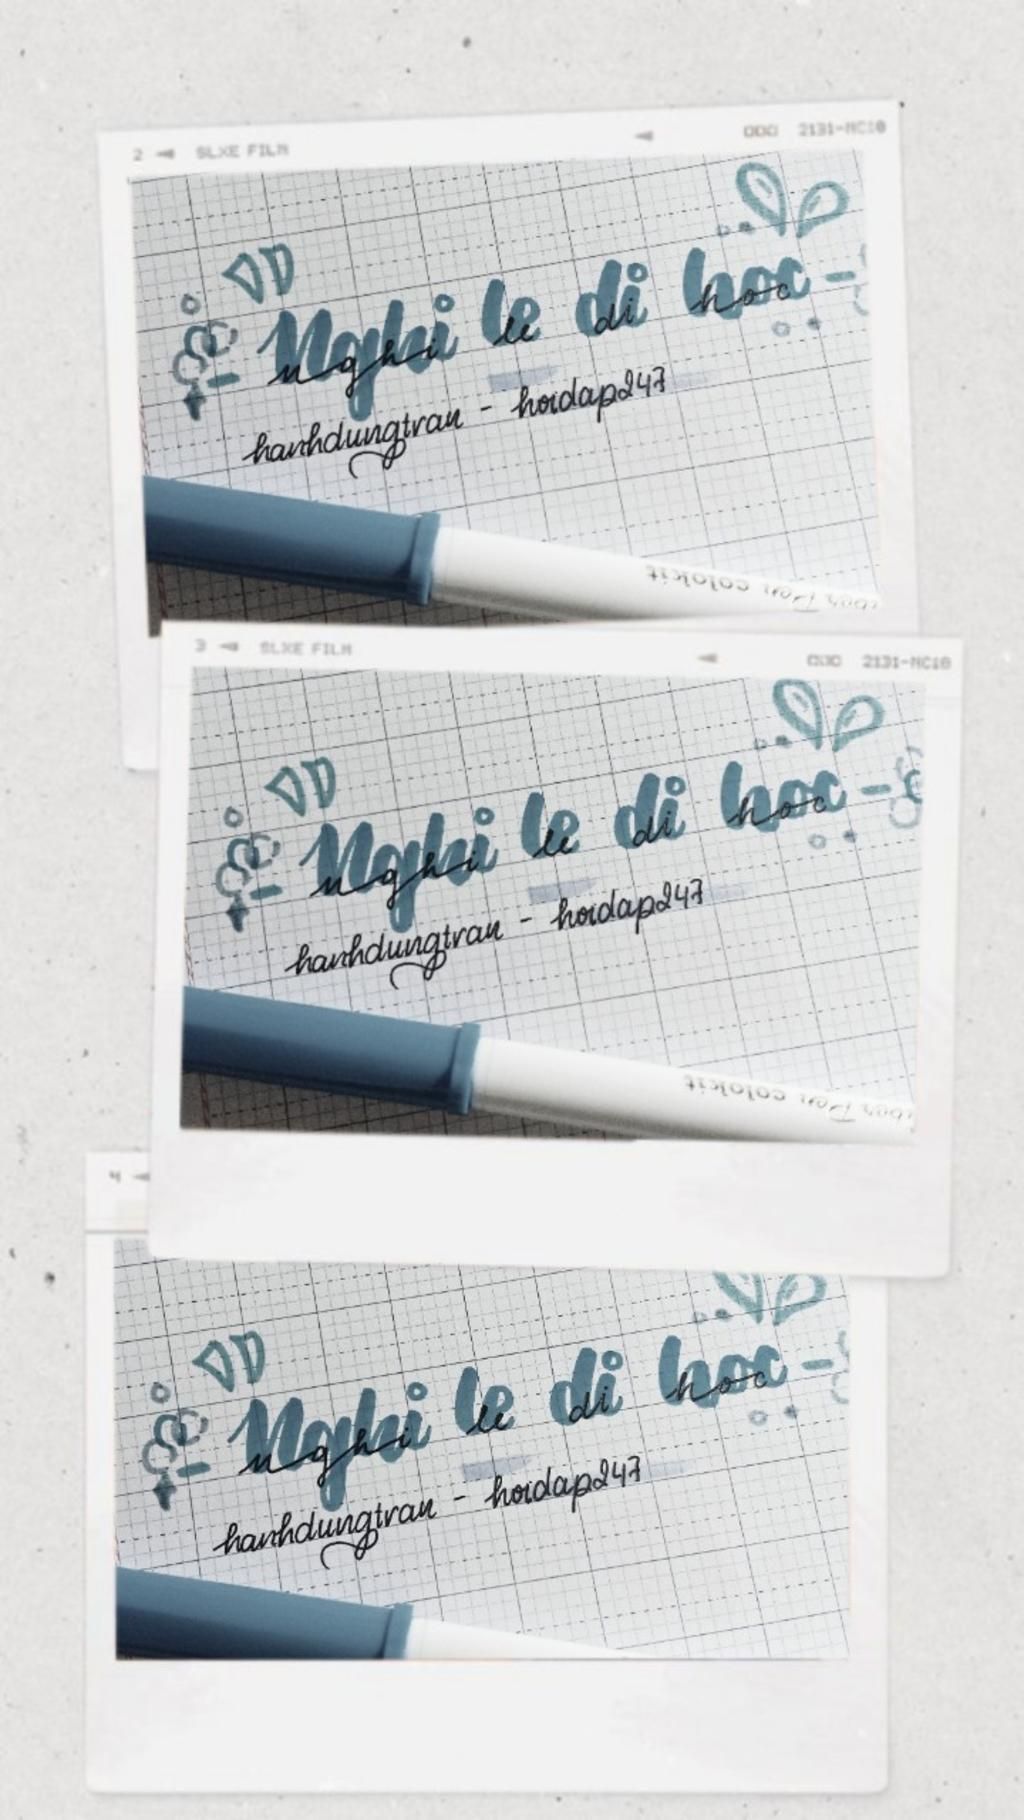 2 SLXE FILM 2131-NC10
Nghi le di hoc -
nghi le di hoc
hanhdungtran - hoidap247
Pen colokit
3 SLXE FILM 2131-NC10
Nghi le di hoc -
nghi le di hoc
hanhdungtran - hoidap247
Pen colokit
4
Nghi le di hoc -
nghi le di hoc
hanhdungtran - hoidap247